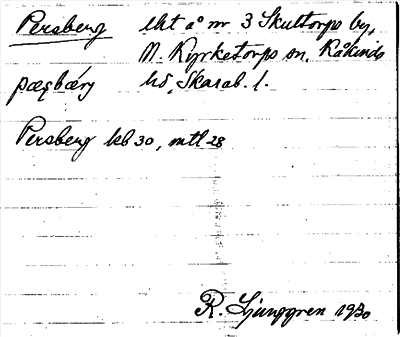 Persberg lht å nr 3 Skultorps by,
N. Kyrketorps sn. Kåkinds
pæʂbærj hd, Skarab. l.
Persberg kb 30, mtl 28
R. Ljunggren 1930